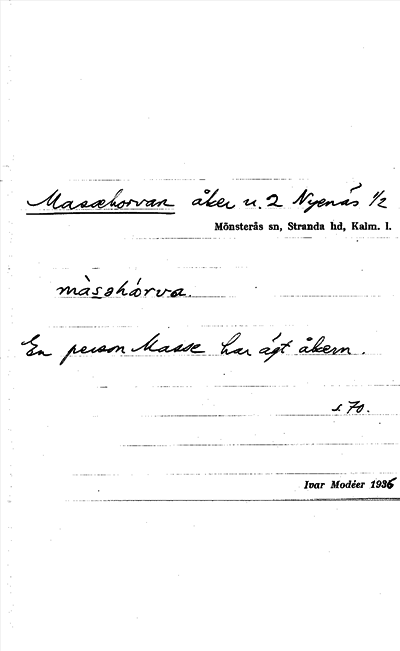 Massehorvan åker u. 2 Nyenäs 1/2
Mönsterås sn, Stranda hd, Kalm. l.
màsəhórva.
En person Masse har ägt åkern.
s 70.
Ivar Modéer 1936